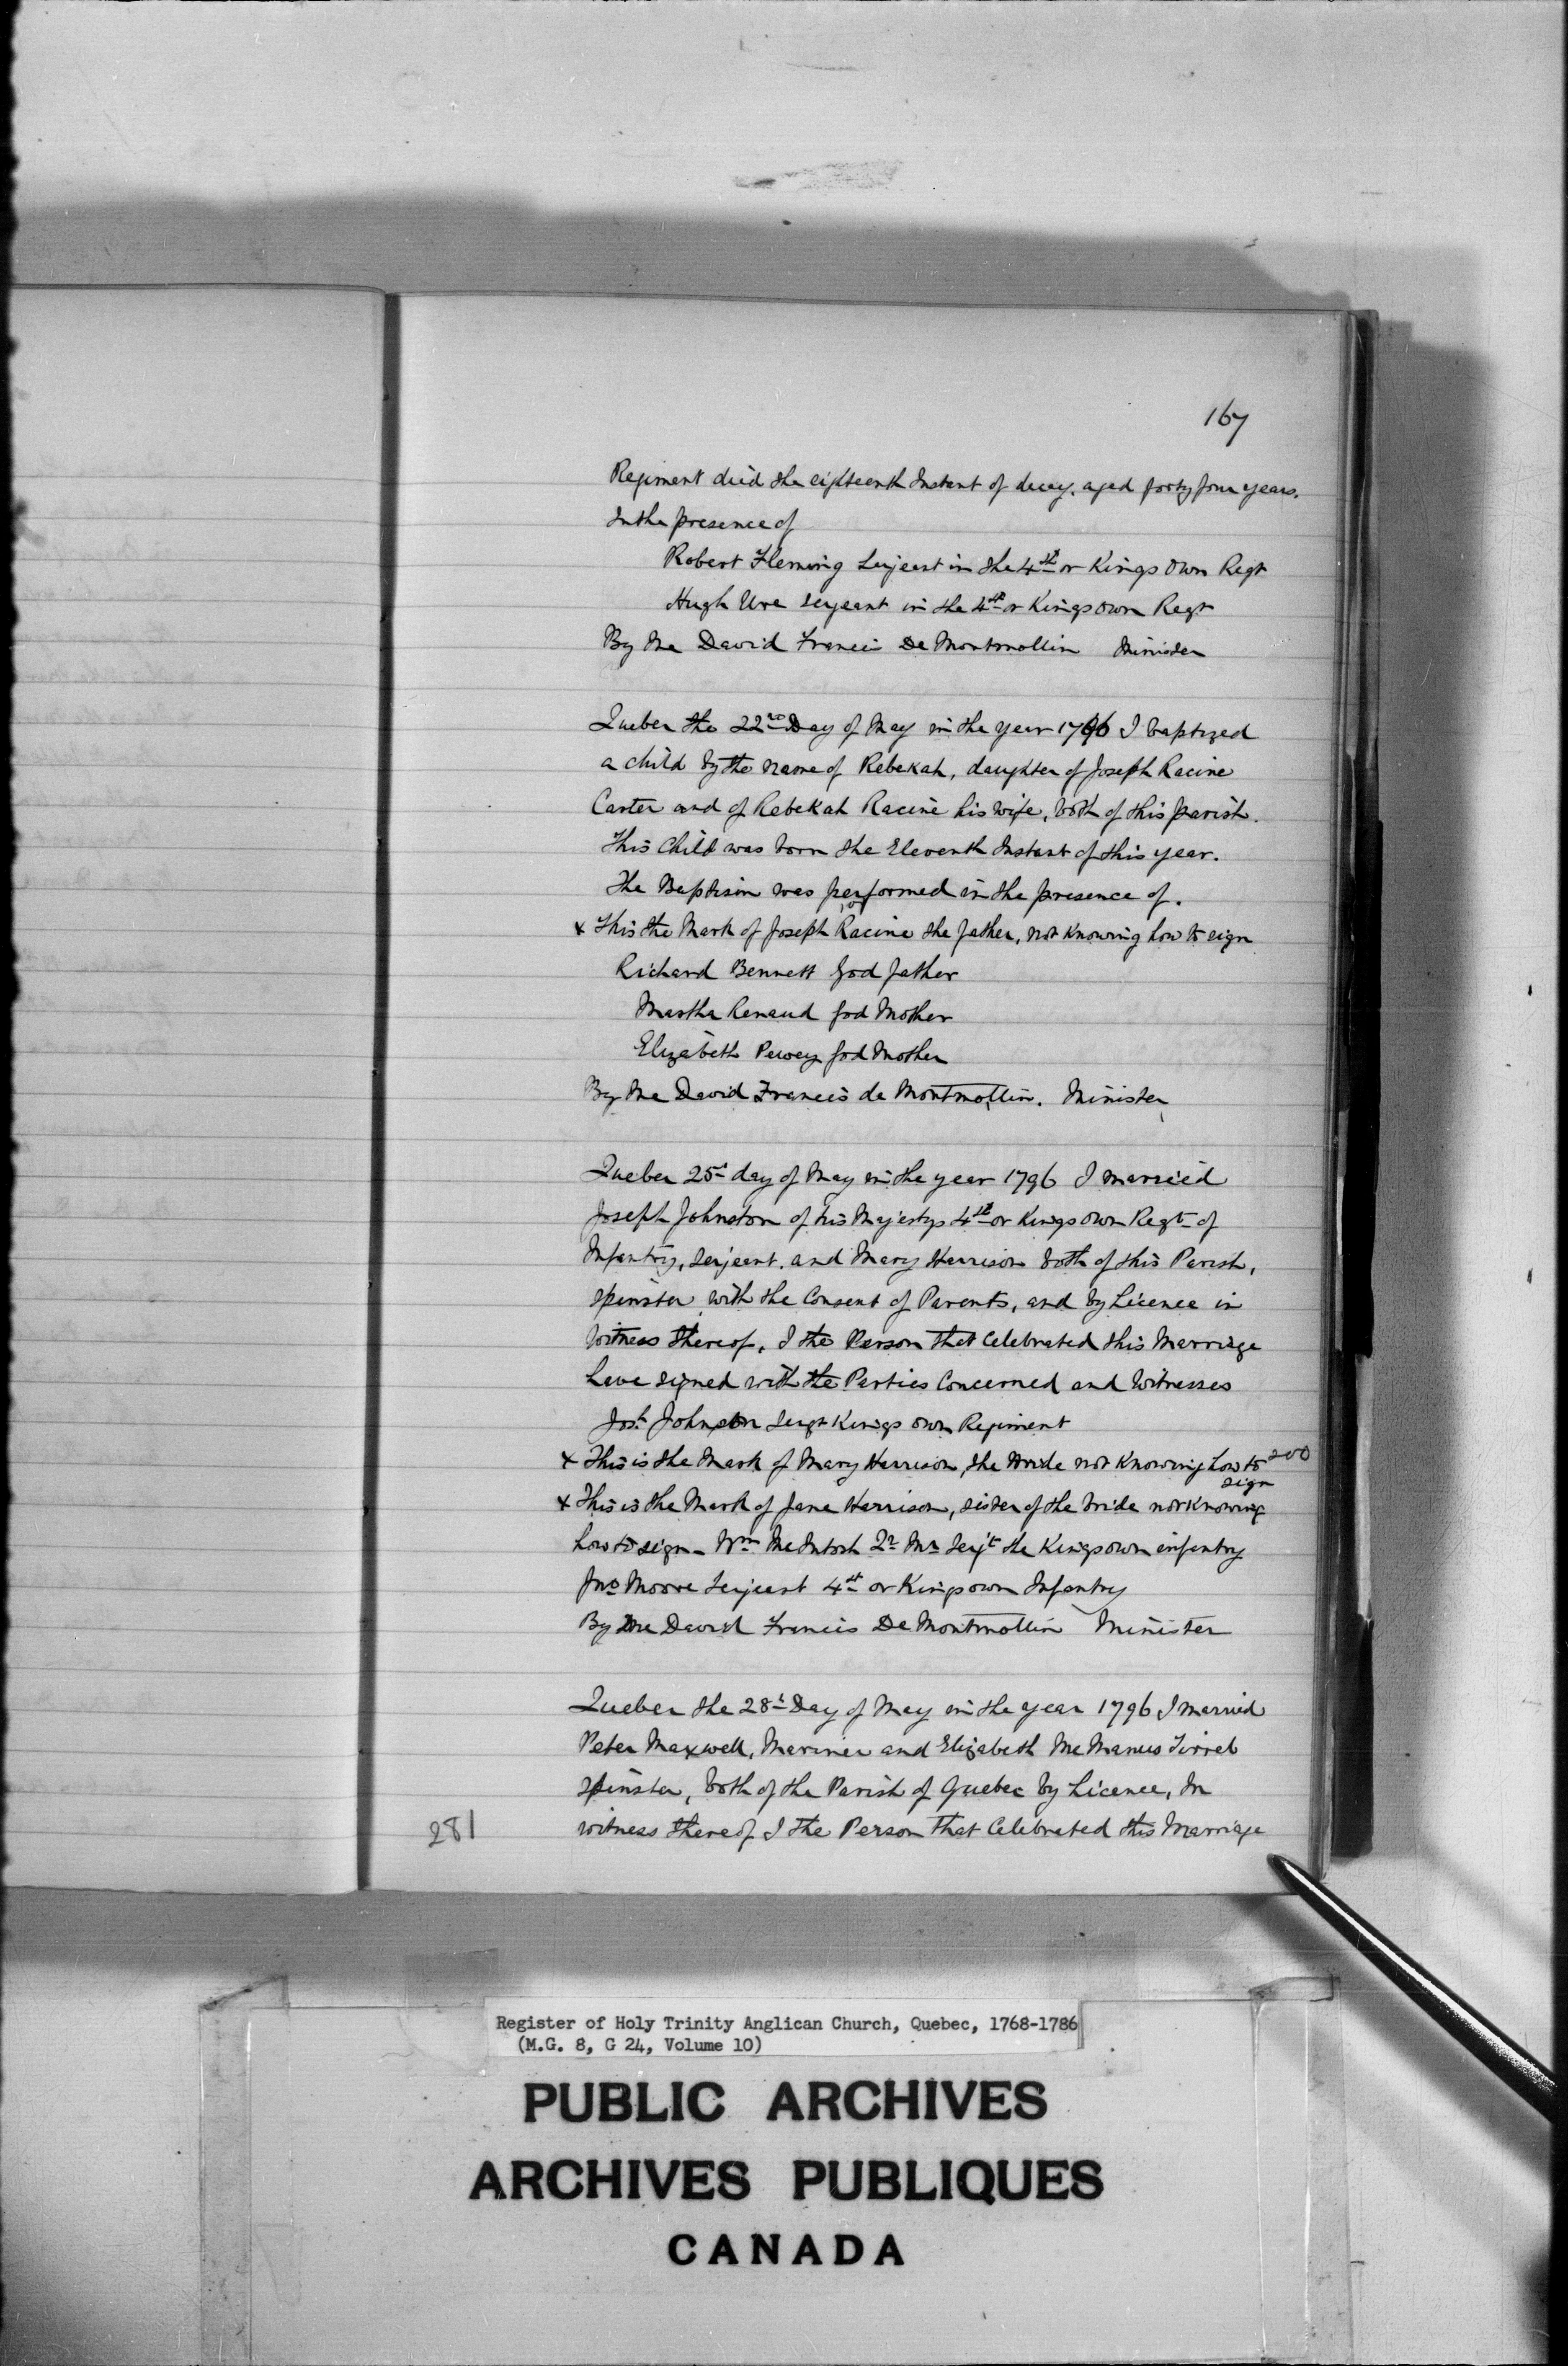 167
Regiment died the eighteenth Instant of decay. aged forty four years.
In the presence of
Robert Fleming Serjeant in the 4th or Kings Own Regt
Hugh Ure Serjeant in the 4th or Kings own Regt
By Me David Francis De Montmollin Minister
Quebec the 22nd Day of May in the year 1796 I baptized
a child by the name of Rebekah, daughter of Joseph Racine
Carter and of Rebekah Racine his wife, both of this parish.
This Child was born the Eleventh Instant of this year.
The Baptism was performed in the presence of.
x This the Mark of Joseph Racine the father, not knowing how to sign
Richard Bennett God father
Martha Renaud God Mother
Elizabeth God Mother
By Me David Francis de Montmollin. Minister
Quebec 25t day of May in the year 1796 I married
Joseph Johnston of his Majestys 4th or Kings own Regt of
Infantry, Serjeant. and Mary Harrison both of this Parish,
Spinster, with the Consent of Parents, and by Licence in
Witness thereof, I the Person that Celebrated this Marriage
have signed with the Parties Concerned and Witnesses
Josh Johnston Sergt Kings own Regiment
x This is the Mark of Mary Harrison, the Bride not knowing how to sign 200
x This is the Mark of Jane Harrison, sister of the bride not knowing
how to sign - Wm McIntosh Qr Mr Serjt the Kings own infantry
Jno Moore Serjeant 4th or Kings own Infantry
By Me David Francis De Montmollin Minister
Quebec the 28t Day of May in the year 1796 I married
Peter Maxwell, Mariner and Elizabeth McManus Tirrel
Spinster, both of the Parish of Quebec by Licence, In
281 witness thereof I the Person that Celebrated this Marriage
Register of Holy Trinity Anglican Church, Quebec, 1768-1786
(M.G. 8, G 24, Volume 10)
PUBLIC ARCHIVES
ARCHIVES PUBLIQUES
CANADA